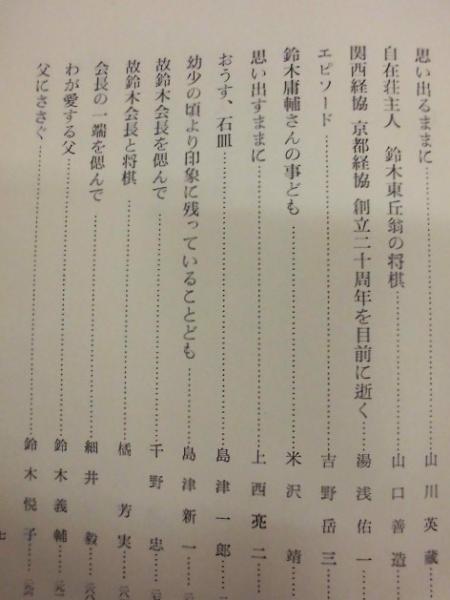 思い出るままに……山川英蔵……
自在荘主人 鈴木東丘翁の将棋……山口善造……
関西経協 京都経協 創立二十周年を目前に逝く……湯浅佑一……
エピソード……吉野岳三……
鈴木庸輔さんの事ども……米沢靖……
思い出すままに……上西亮二……
おうす、石皿……島津一郎……
幼少の頃より印象に残っていることども……島津新一……
故鈴木会長を偲んで……千野忠……
故鈴木会長と将棋……橘芳実……
会長の一端を偲んで……細井毅……
わが愛する父……鈴木義輔……
父にささぐ……鈴木悦子……
七